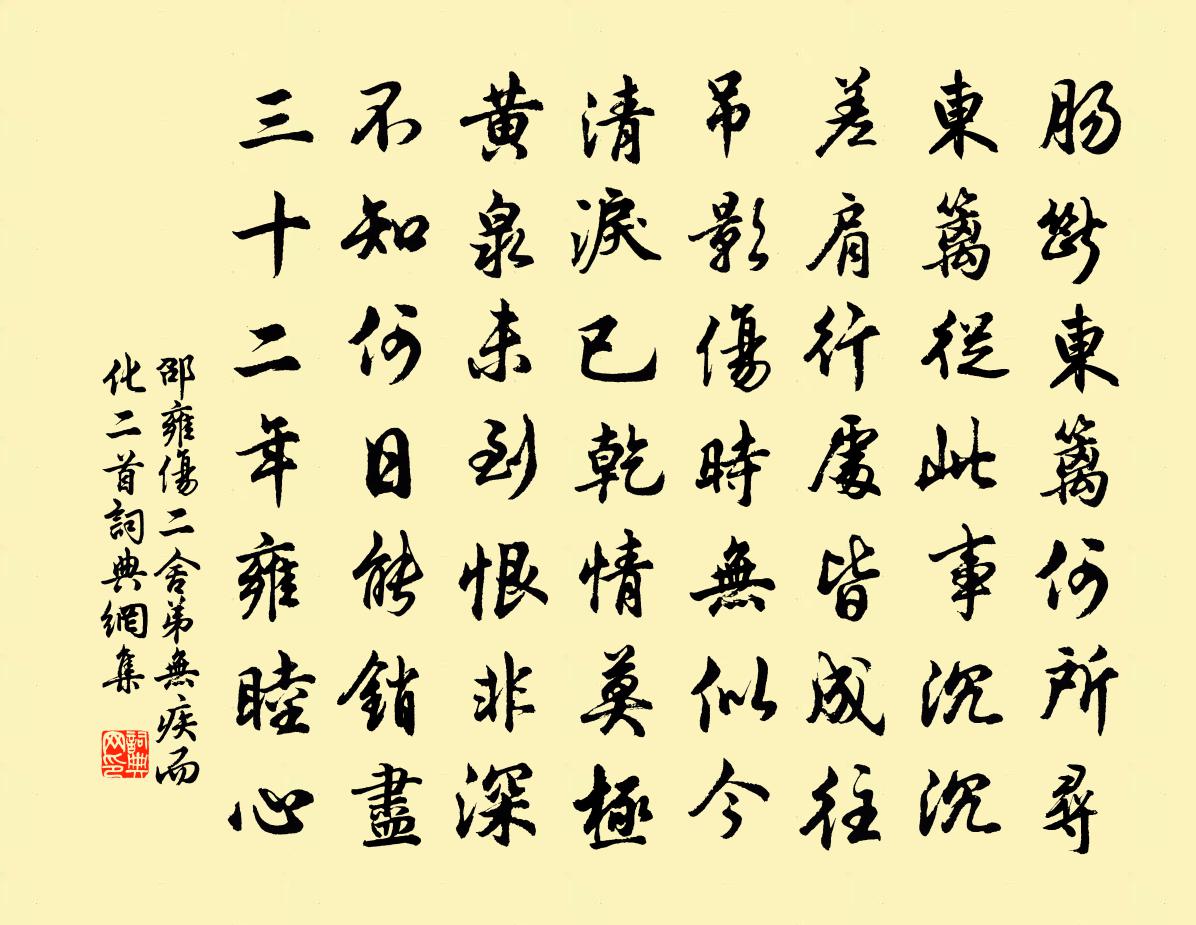 腸斷東籬何所尋
東籬從此事沉沉
差肩行處皆成往
吊影傷時無似今
清淚已乾情莫極
黃泉未到恨非深
不知何日能銷盡
三十二年雍睦心
邵雍傷二舍弟無疾而
化二首詞典網集
詞典
网印